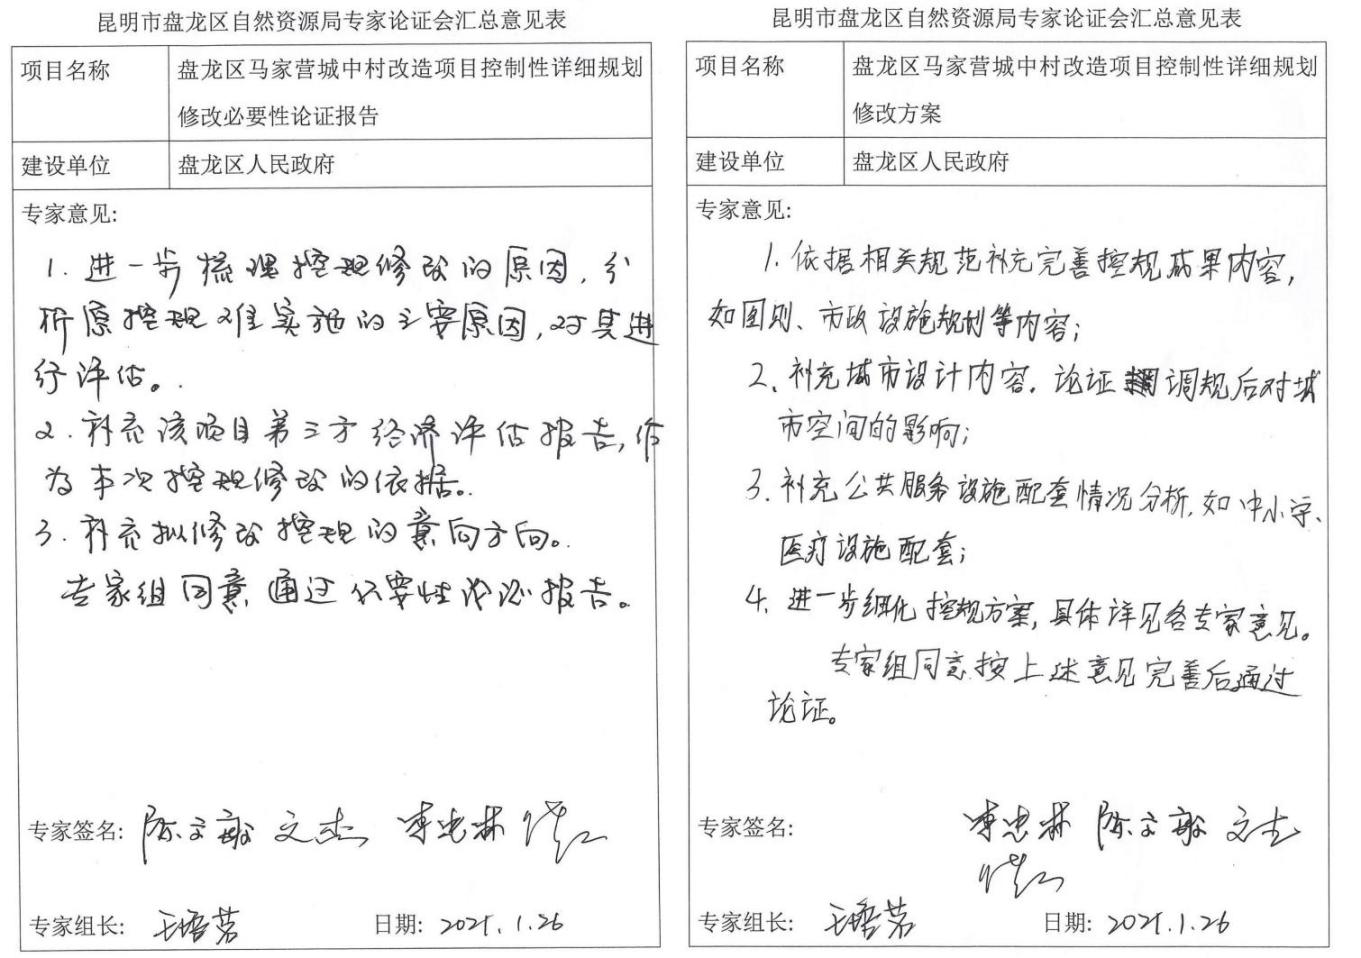 昆明市盘龙区自然资源局专家论证会汇总意见表
项目名称
盘龙区马家营城中村改造项目控制性详细规划
修改必要性论证报告
建设单位
盘龙区人民政府
专家意见:
1. 进一步梳理控规修改的原因,分
析原控规难实施的主要原因,对其进
行评估。
2. 补充该项目第三方经济评估报告,作
为本次控规修改的依据。
3. 补充拟修改控规的意向方向。
专家组同意通过必要性论证报告。
专家签名: 陈文敏 文杰
专家组长:
日期: 2021.1.26
昆明市盘龙区自然资源局专家论证会汇总意见表
项目名称
盘龙区马家营城中村改造项目控制性详细规划
修改方案
建设单位
盘龙区人民政府
专家意见:
1. 依据相关规范补充完善控规成果内容,
如图则、市政设施规划等内容;
2. 补充城市设计内容. 论证调规后对城
市空间的影响;
3. 补充公共服务设施配套情况分析, 如中小学、
医疗设施配套;
4. 进一步细化控规方案, 具体详见各专家意见。
专家组同意按上述意见完善后通过
论证。
专家签名: 陈文敏 文杰
专家组长:
日期: 2021.1.26